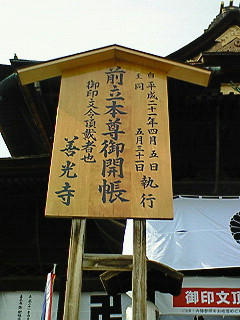 自平成二十一年四月五日
至同五月三十一日
執行
前立本尊御開帳
御印文今頂戴者也
善光寺
卍
御印文頂